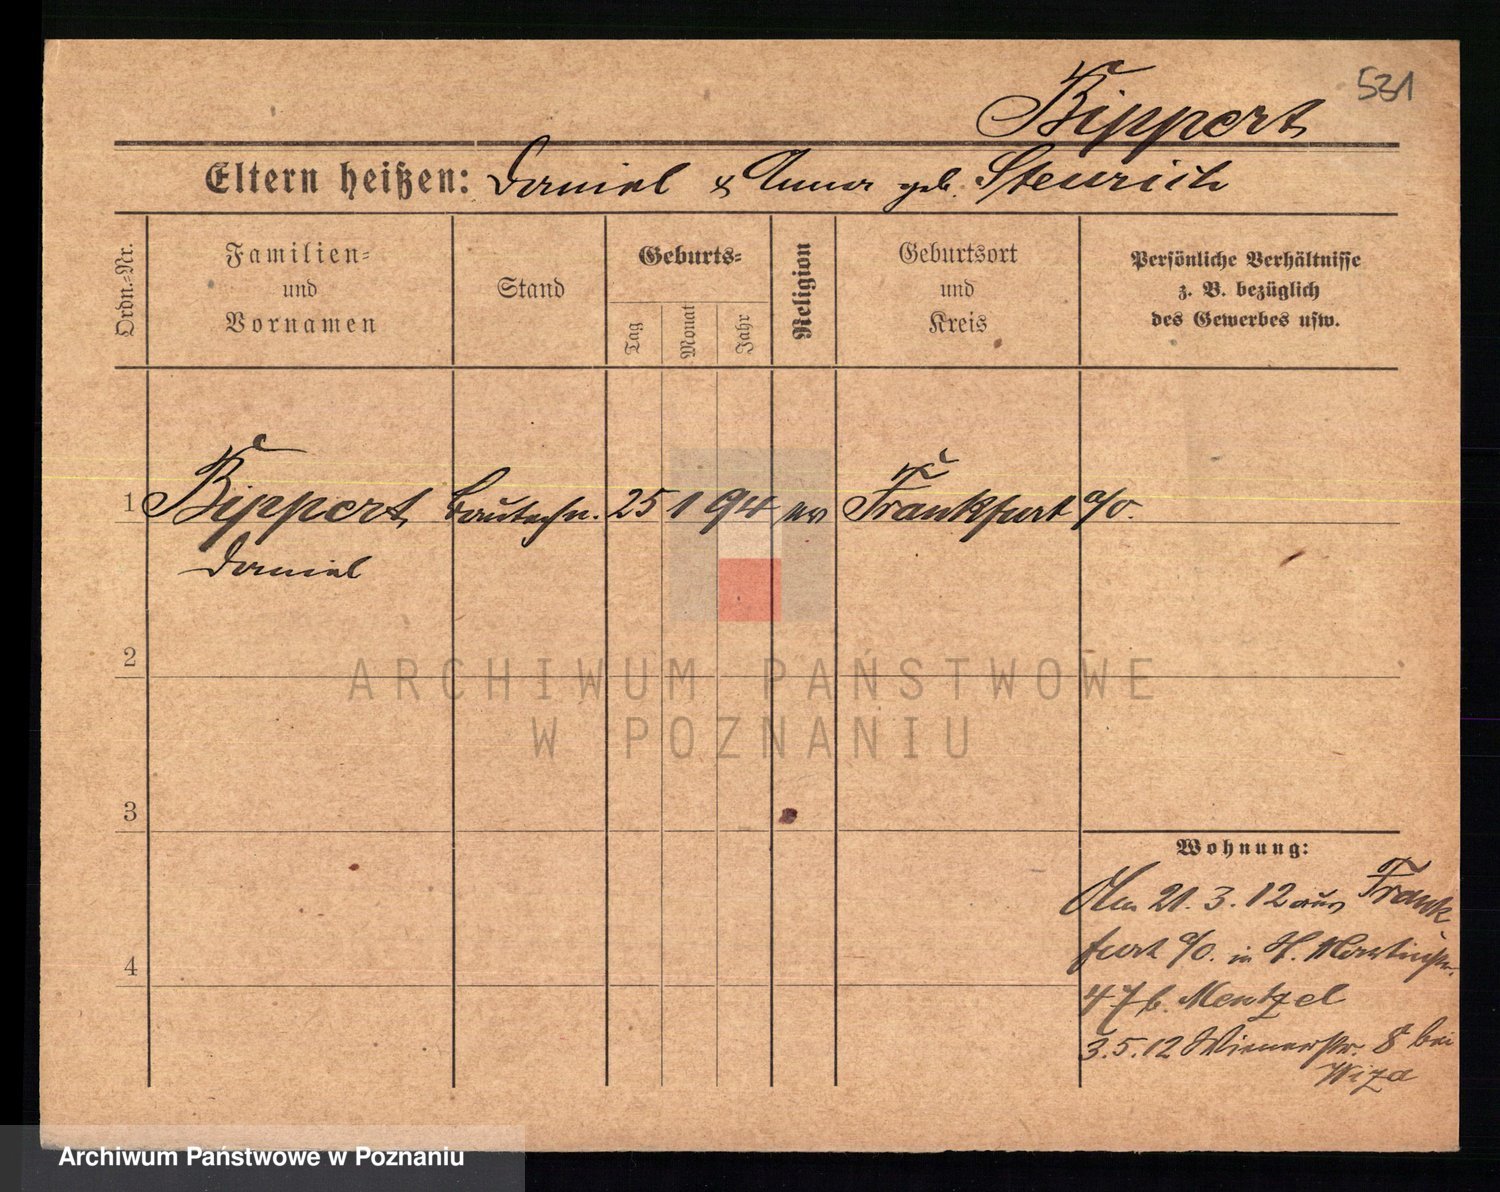 531
Bippert
Eltern heißen: Daniel & Anna geb. Steurich
Ordn.=Nr.
Familien=
und
Vornamen
Stand
Geburts=
Tag
Monat
Jahr
Religion
Geburtsort
und
Kreis
Persönliche Verhältnisse
z. B. bezüglich
des Gewerbes usw.
1 Bippert Bautechn. 25 1 94 ev Frankfurt a/O.
Daniel
2
3
4
Wohnung:
21. 3. 12 aus Frank
furt a/O. in St. Martinstr.
47 b. Mentzel
3.5.12 Wienerstr. 8 bei
Wiza
ARCHIWUM PAŃSTWOWE
W POZNANIU
Archiwum Państwowe w Poznaniu